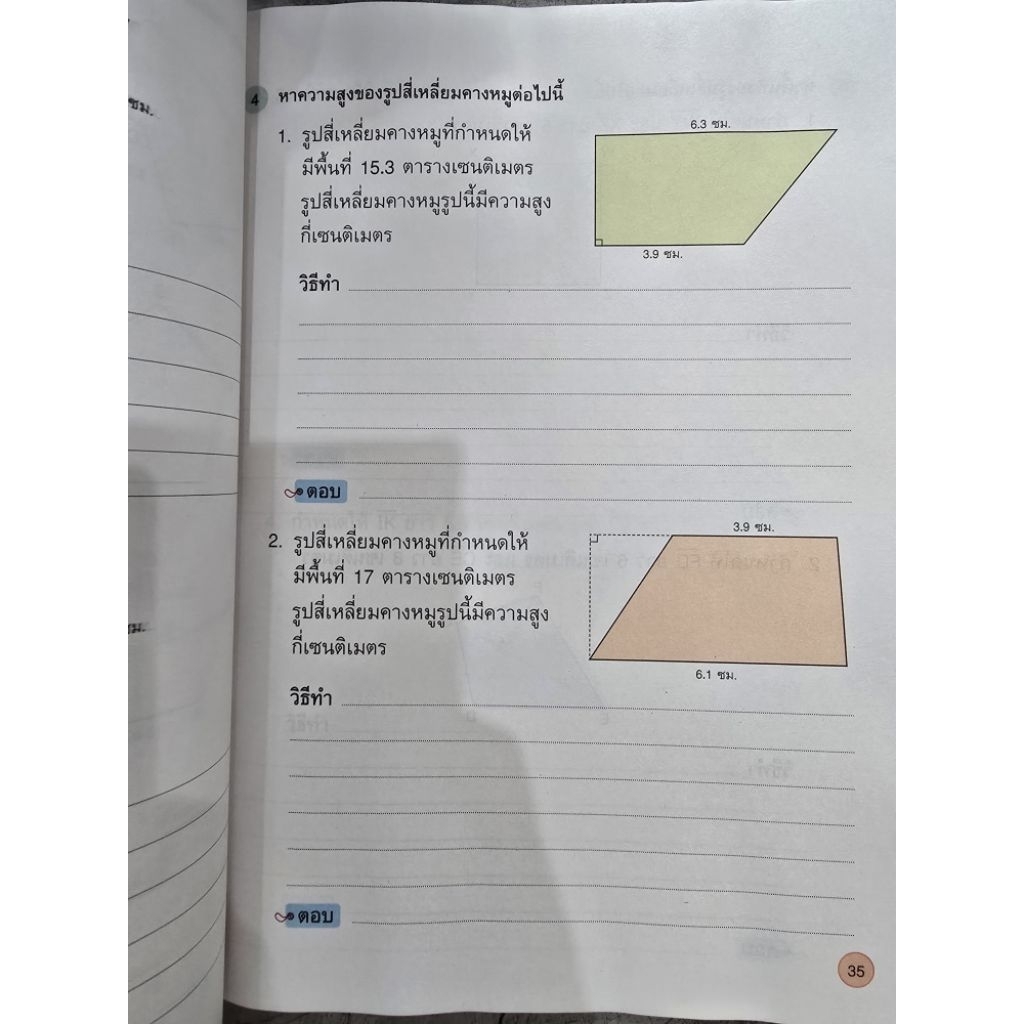 ซม.
4 หาความสูงของรูปสี่เหลี่ยมคางหมูต่อไปนี้
1. รูปสี่เหลี่ยมคางหมูที่กำหนดให้
มีพื้นที่ 15.3 ตารางเซนติเมตร
รูปสี่เหลี่ยมคางหมูรูปนี้มีความสูง
กี่เซนติเมตร
6.3 ซม.
3.9 ซม.
วิธีทำ
ตอบ
2. รูปสี่เหลี่ยมคางหมูที่กำหนดให้
มีพื้นที่ 17 ตารางเซนติเมตร
รูปสี่เหลี่ยมคางหมูรูปนี้มีความสูง
กี่เซนติเมตร
3.9 ซม.
6.1 ซม.
วิธีทำ
ตอบ
35